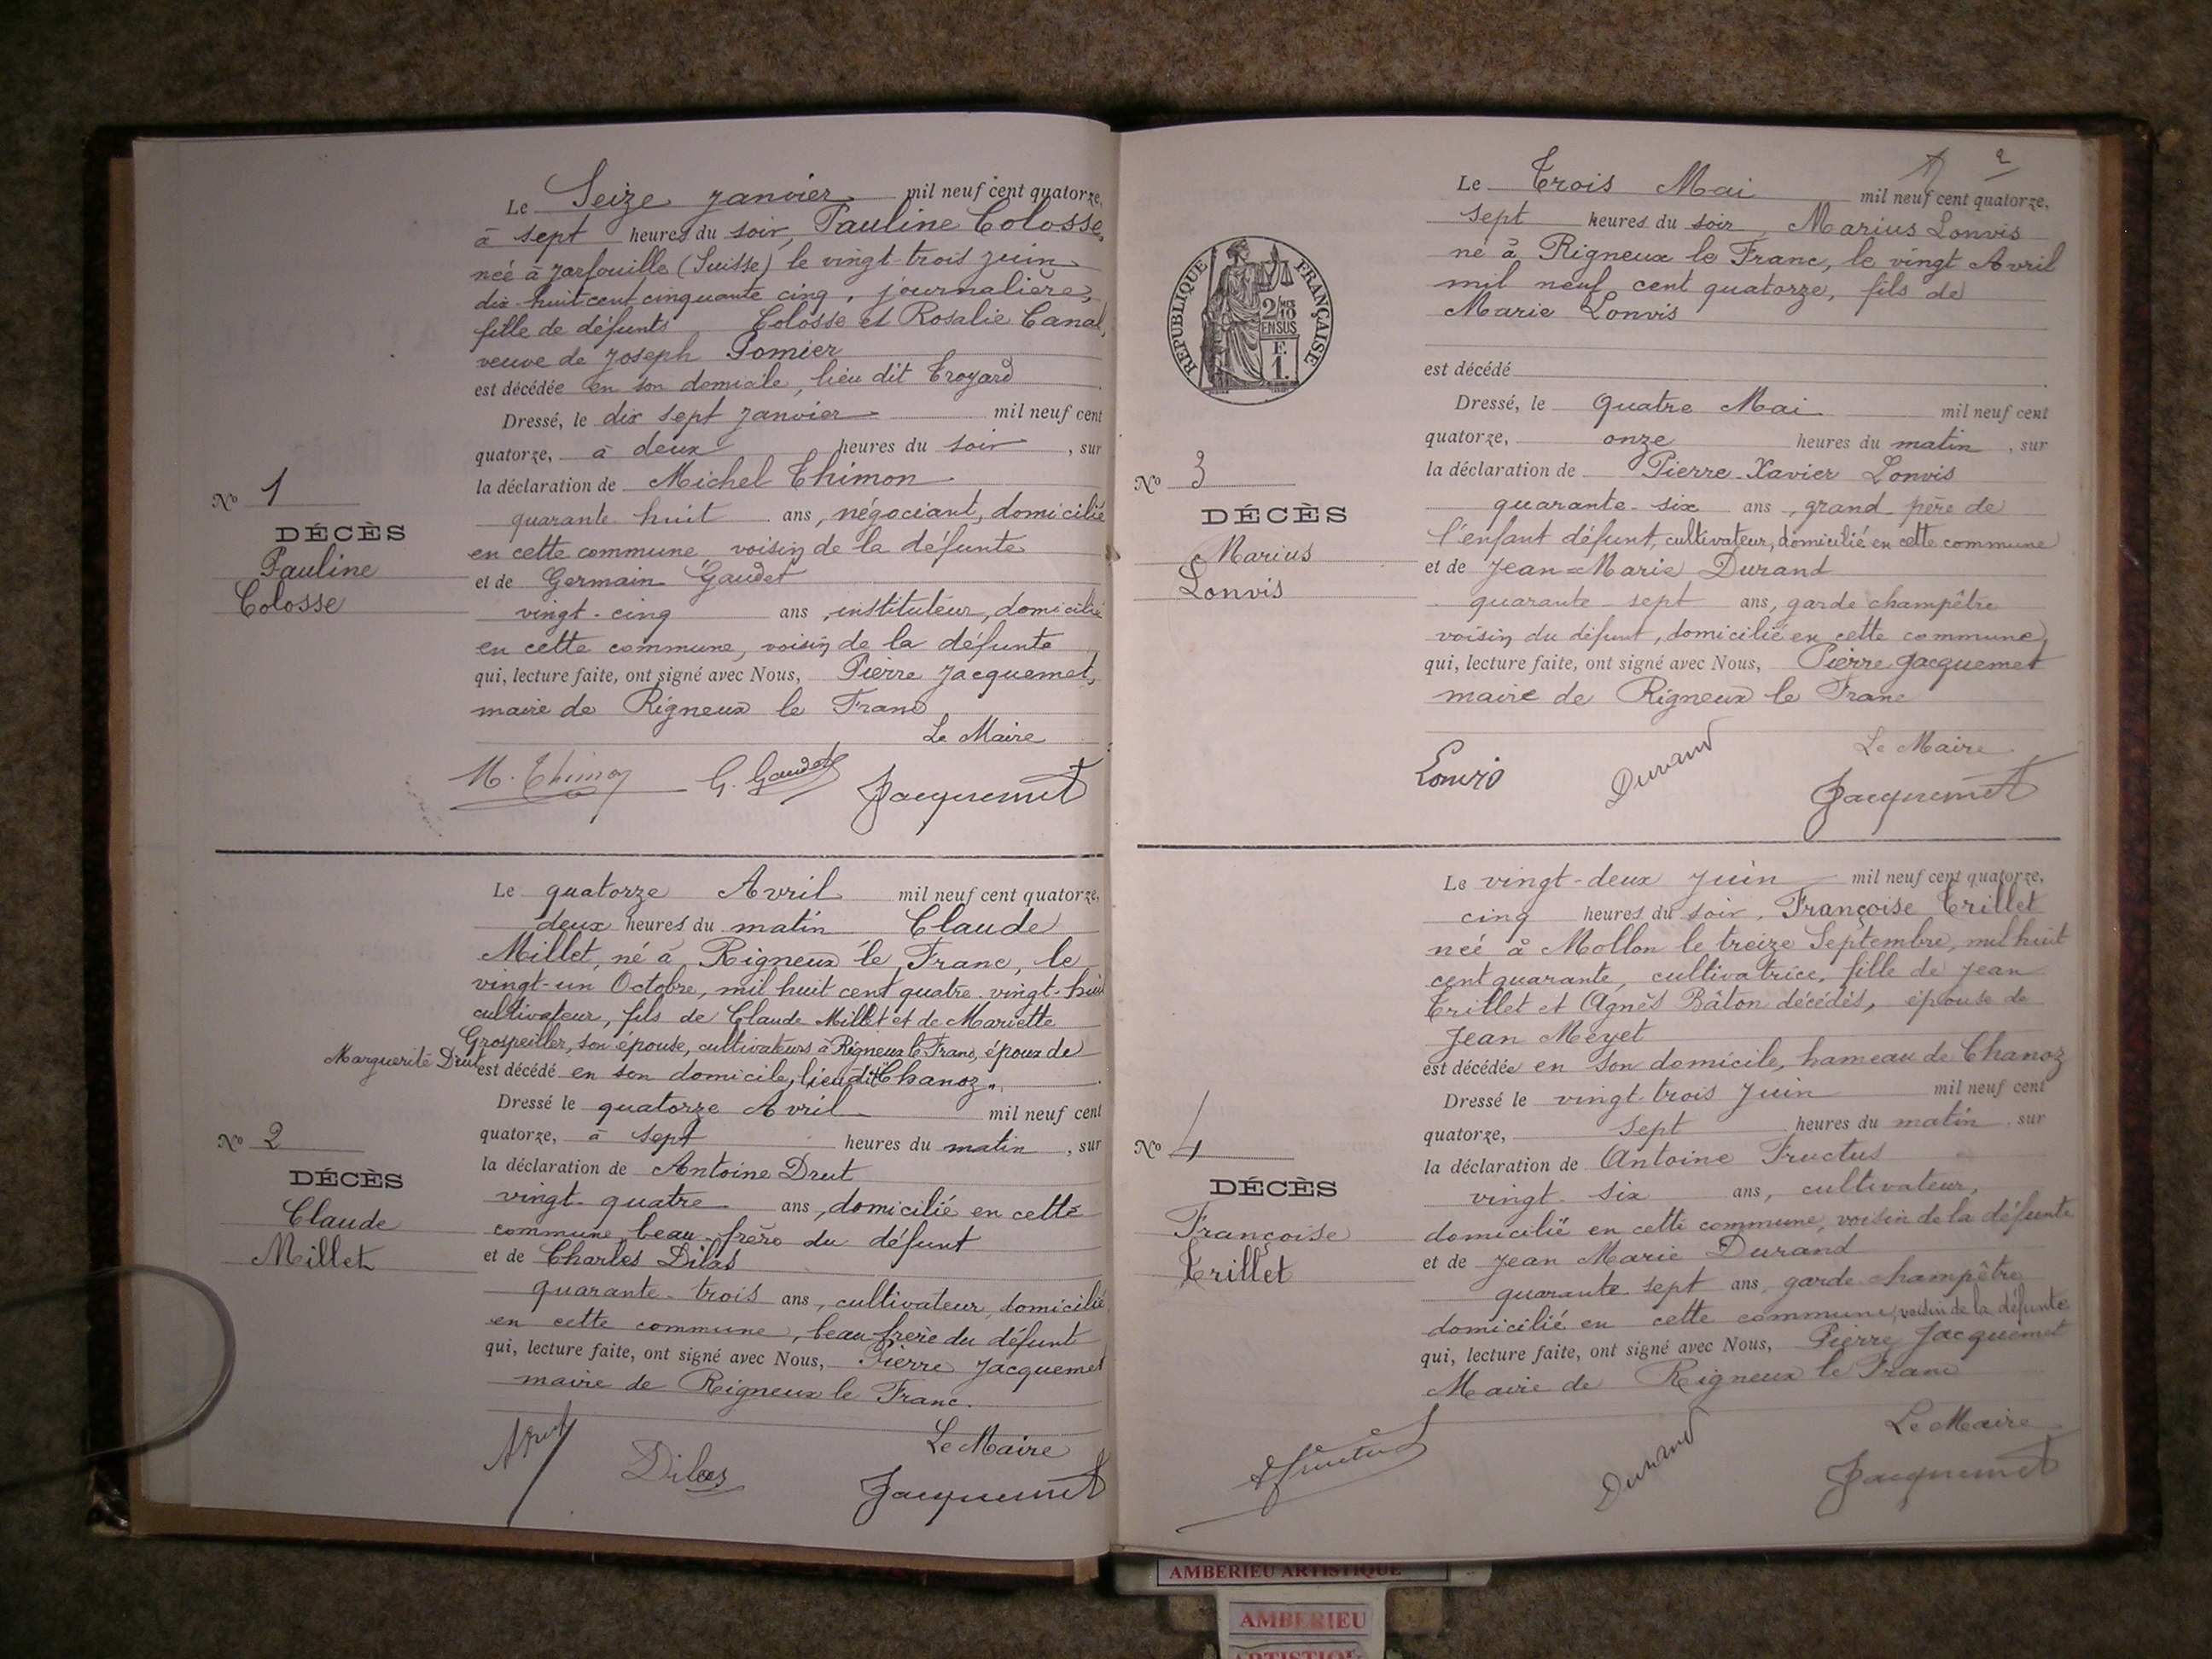 Le Seize janvier mil neuf cent quatorze,
à sept heures du soir, Pauline Colosse,
neé à Jarfouille (Suisse) le vingt-trois juin
dix-huit cent cinquante cinq, journalière,
fille de défunts Colosse et Rosalie Canal,
veuve de Joseph Pomier
est décédée en son domicile, lieu dit Croyard
Dressé, le dix sept janvier mil neuf cent
quatorze, à deux heures du soir, sur
la déclaration de Michel Thimon
quarante huit ans, négociant, domicilié
en cette commune voisin de la défunte
et de Germain Gaudet
vingt-cinq ans, instituteur, domicilié
en cette commune, voisin de la défunte
qui, lecture faite, ont signé avec Nous, Pierre Jacquemet,
maire de Rigneux le Franc
Le Maire
M. Thimon G. Gaudet Jacquemet
No 1
DÉCÈS
Pauline
Colosse
Le quatorze Avril mil neuf cent quatorze,
deux heures du matin Claude
Millet, né à Rigneux le Franc, le
vingt-un Octobre, mil huit cent quatre-vingt-huit
cultivateur, fils de Claude Millet et de Mariette
Grospeiller, son épouse, cultivateurs à Rigneux le Franc, époux de
Marguerite Drut est décédé en son domicile, lieu dit "Chanoz".
Dressé le quatorze Avril mil neuf cent
quatorze, à sept heures du matin, sur
la déclaration de Antoine Drut
vingt-quatre ans, domicilié en cette
commune, beau-frère du défunt
et de Charles Dilas
quarante-trois ans, cultivateur, domicilié
en cette commune, beau-frère du défunt
qui, lecture faite, ont signé avec Nous, Pierre Jacquemet
maire de Rigneux le Franc.
Le Maire
A Drut Dilas Jacquemet
No 2
DÉCÈS
Claude
Millet
2
RÉPUBLIQUE FRANÇAISE
2/10
EN SUS
F.
1.
Le Trois Mai mil neuf cent quatorze,
sept heures du soir, Marius Lonvis
né à Rigneux le Franc, le vingt Avril
mil neuf cent quatorze, fils de
Marie Lonvis
est décédé
Dressé, le Quatre Mai mil neuf cent
quatorze, onze heures du matin, sur
la déclaration de Pierre-Xavier Lonvis
quarante-six ans, grand père de
l'enfant défunt, cultivateur, domicilié en cette commune
et de Jean-Marie Durand
quarante-sept ans, garde champêtre
voisin du défunt, domicilié en cette commune,
qui, lecture faite, ont signé avec Nous, Pierre Jacquemet
maire de Rigneux le Franc
Le Maire
Lonvis Durand Jacquemet
No 3
DÉCÈS
Marius
Lonvis
Le vingt-deux juin mil neuf cent quatorze,
cinq heures du soir, Françoise Trillet
neé à Mollon le treize Septembre, mil huit
cent quarante, cultivatrice, fille de Jean
Trillet et Agnès Bâton décédés, épouse de
Jean Meyet
est décédée en son domicile, hameau de Chanoz
Dressé le vingt-trois Juin mil neuf cent
quatorze, sept heures du matin, sur
la déclaration de Antoine Fructus
vingt-six ans, cultivateur,
domicilié en cette commune, voisin de la défunte
et de Jean Marie Durand
quarante sept ans, garde champêtre
domicilié en cette commune, voisin de la défunte
qui, lecture faite, ont signé avec Nous, Pierre Jacquemet
Maire de Rigneux le Franc
Le Maire
A Fructus Durand Jacquemet
No 4
DÉCÈS
Françoise
Trillet
AMBERIEU ARTISTIQUE
AMBERIEU
ARTISTIQUE